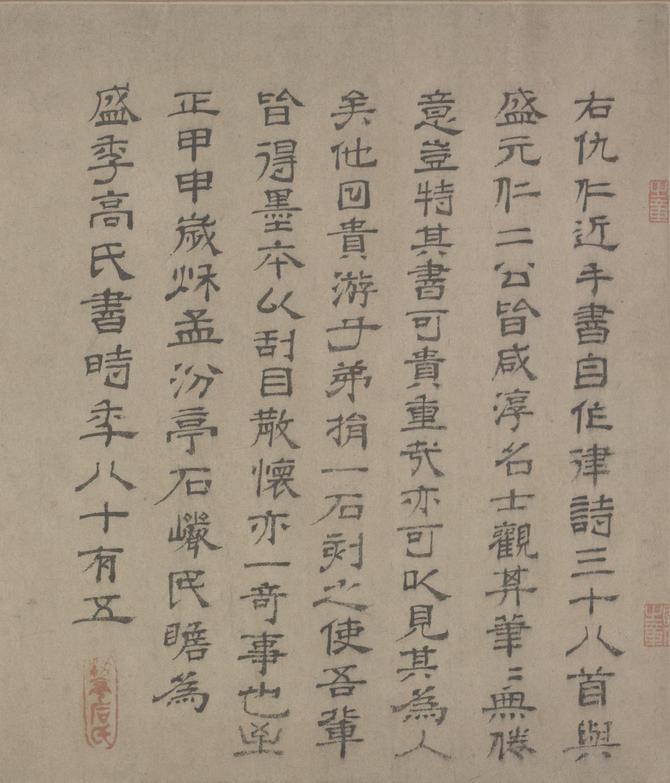 右仇仁近手書自作律詩三十八首與
盛元仁二公皆咸淳名士觀其筆〻無倦
意豈特其書可貴重哉亦可以見其為人
矣他日貴游子弟捐一石刻之使吾輩
皆得墨本以刮目散懷亦一奇事也至
正甲申歲秌孟汾亭石巖民瞻為
盛季高氏書時年八十有五